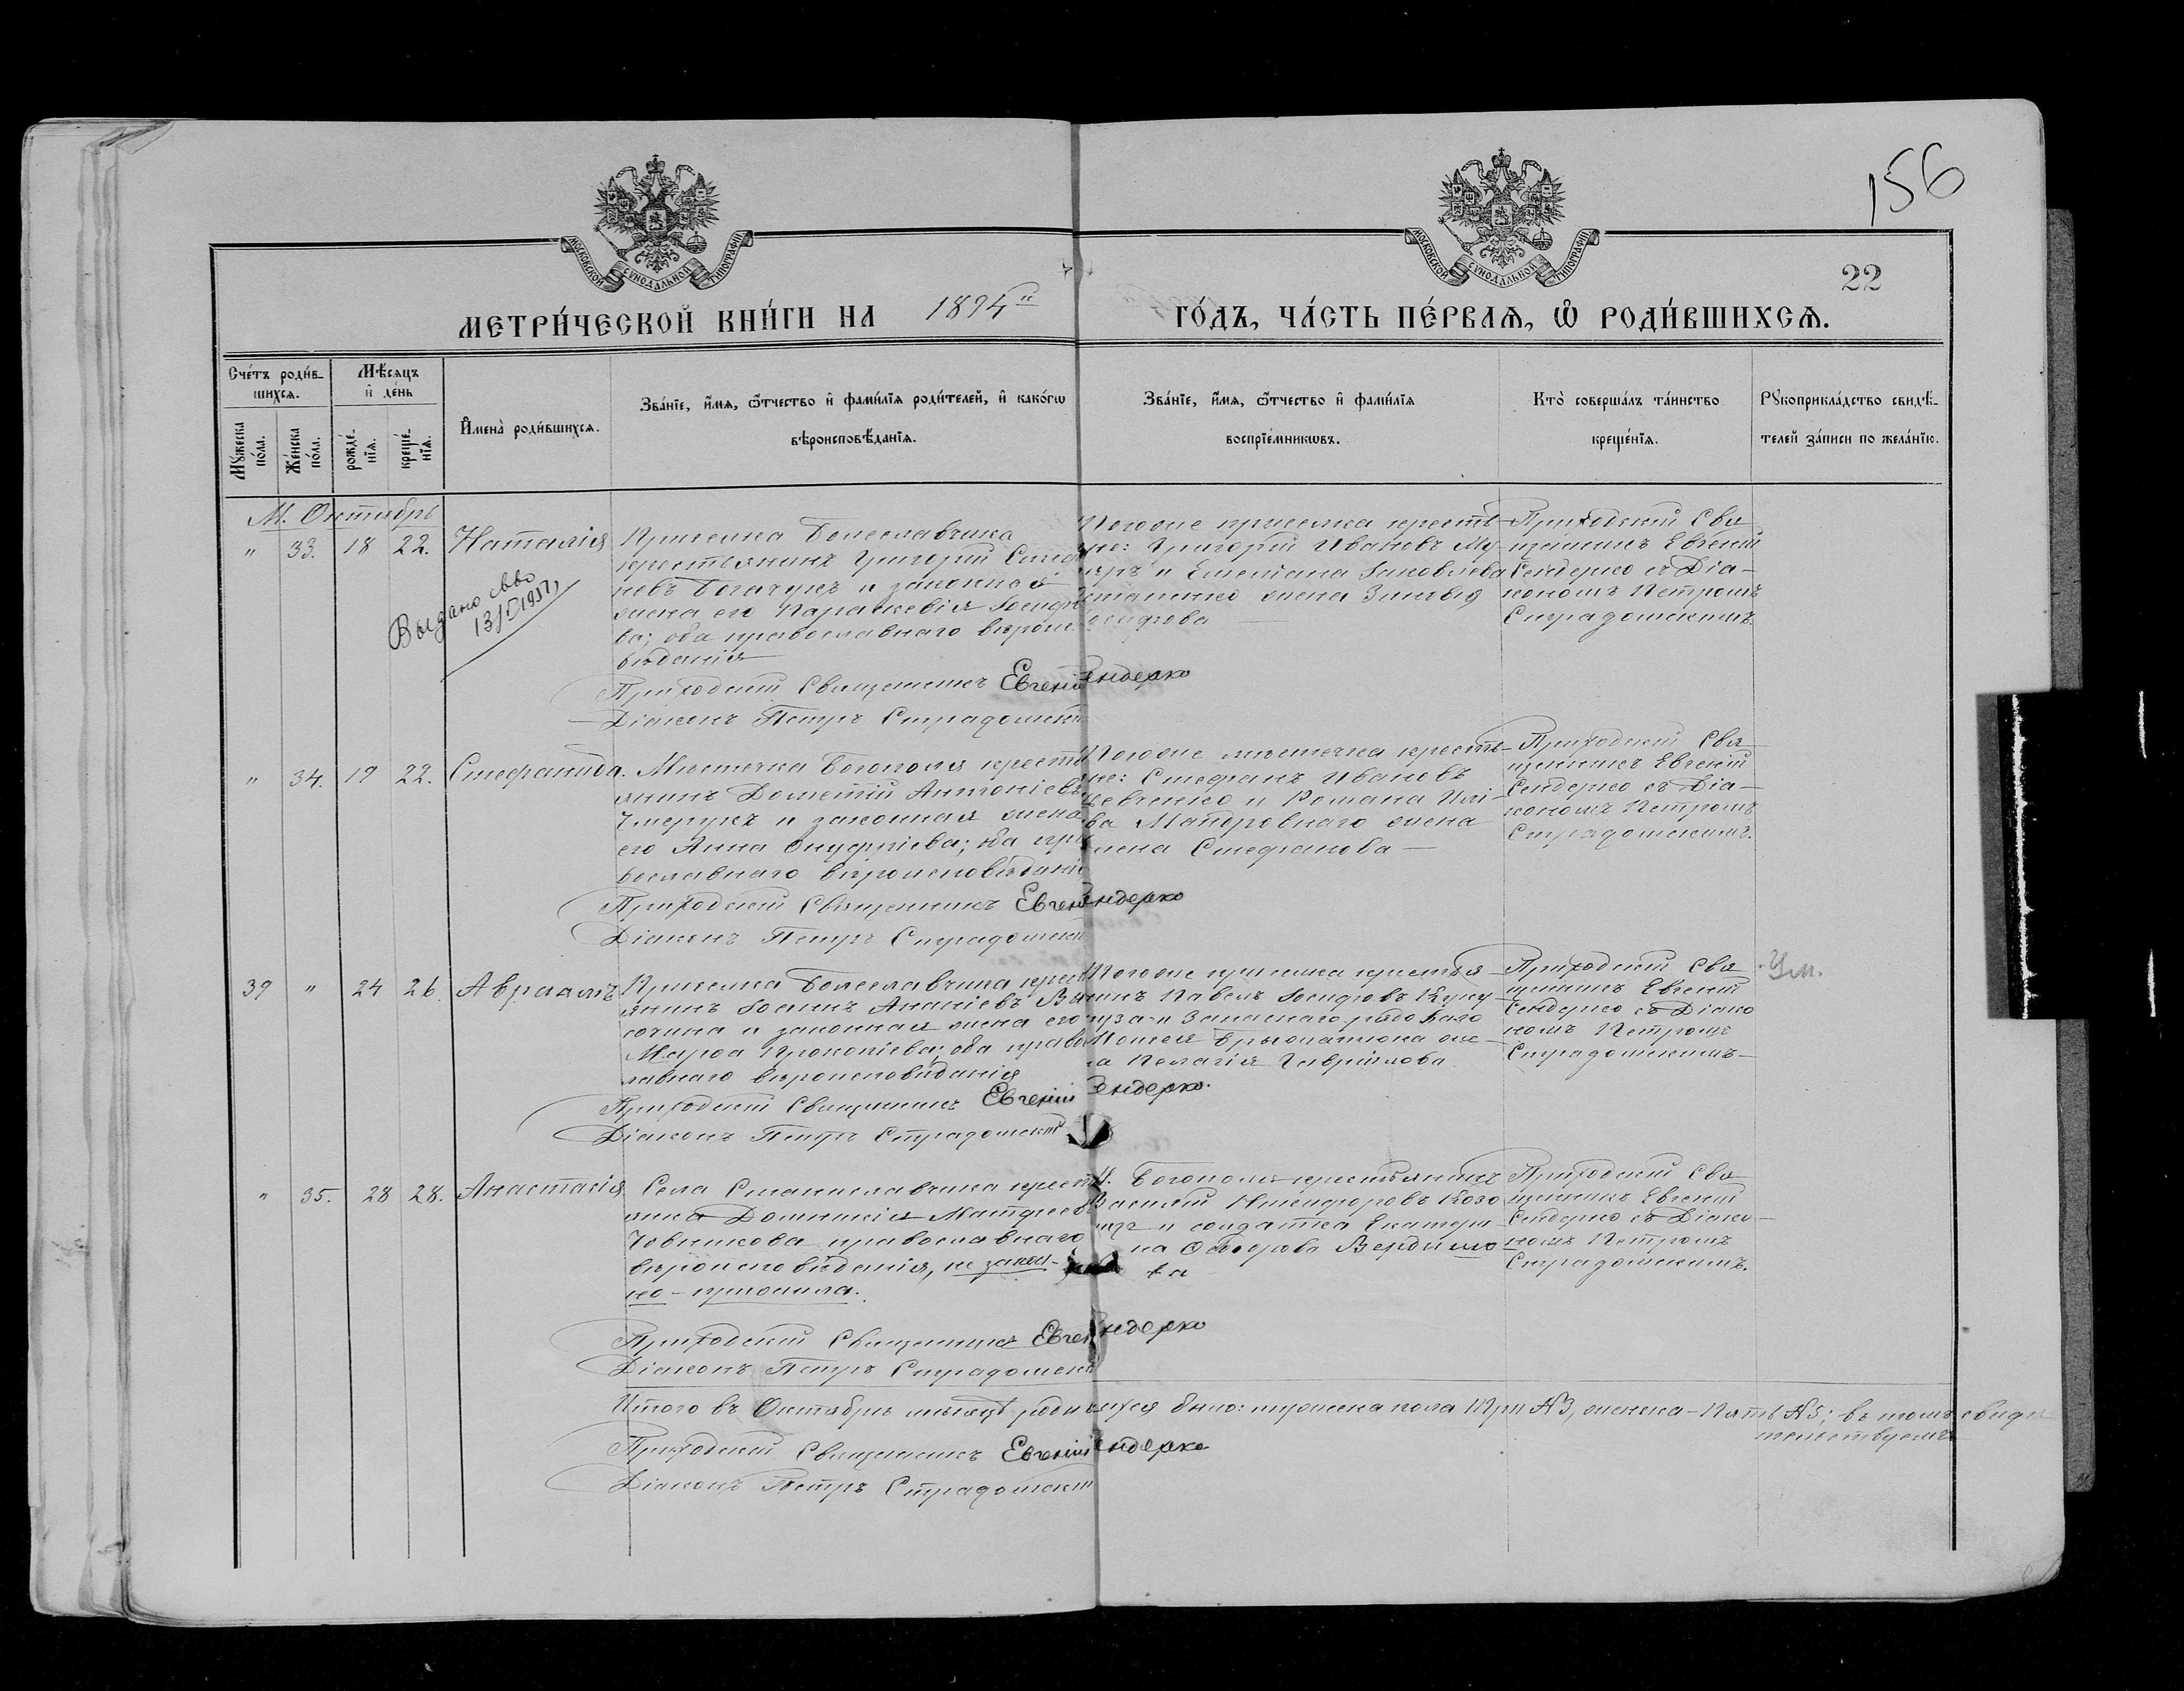 156
МОСКОВСКОЙ СУНОДАЛЬНОЙ ТИПОГРАФІИ
МОСКОВСКОЙ СУНОДАЛЬНОЙ ТИПОГРАФІИ
22
МЕТРИ́ЧЕСКОЙ КНИ́ГИ НА 1894 ГО́ДЪ, ЧА́СТЬ ПЕ́РВАѦ, Ѡ РОДИ́ВШИХСѦ.
Сче́тъ роди́в-
шихсѧ.
Мѣ́сѧцъ
и҆ де́нь
Мꙋжеска по́ла.
Же́нска по́ла.
рожде́-
нїѧ.
креще́-
нїѧ.
И҆мена̀ роди́вшихсѧ.
Зва́нїе, и҆́мѧ, ѻ҆́тчество и҆ фами́лїѧ роди́телей, и҆ како́гѡ
вѣроисповѣ́данїѧ.
Зва́нїе, и҆́мѧ, ѻ҆́тчество и҆ фами́лїѧ
воспрїе́мникѡвъ.
Кто̀ соверша́лъ та́инство
креще́нїѧ.
Рꙋкоприкла́дство свидѣ́-
телей за́писи по жела́нїю.
М. Октябрь
" 33. 18 22. Наталія
Выдано свво
13/V 1957
Приселка Болеславчика
крестьянинъ Григорій Стеф
новъ Богачукъ и законная
жена его Параскевія Іосифо
ва; оба православнаго вѣроис
вѣданія
Тогоже приселка крестья
не: Григорій Ивановъ
и Емеліана Іаковлева
жена Зиновія
Приходскій Свя-
щенникъ Евгеній
Сендерко съ Діа-
кономъ Петромъ
Страдомскимъ.
Приходскій Священникъ Евгеній Сендерко
Діаконъ Петръ Страдомскій
" 34. 19 22. Стефанида.
Мѣстечка Богополя кресть
янинъ Дометій Антоніевъ
Чмерукъ и законная жена
его Анна Онуфріева; оба пра
вославнаго вѣроисповѣданія
Тогоже мѣстечка крестья-
не: Стефанъ Ивановъ
Шевченко и Романа
жена
Стефанова —
Приходскій Свя-
щенникъ Евгеній
Сендерко съ Діа-
кономъ Петромъ
Страдомскимъ.
Приходскій Священникъ Евгеній Сендерко
Діаконъ Петръ Страдомскій
39 " 24 26. Авраамъ
Приселка Болеславчика крест
янинъ Іоаннъ Ананіевъ
и законная жена его
Марфа Прокопіева; оба право
лавнаго вѣроисповѣданія
Тогоже приселка крестья-
нинъ Павелъ Іосифовъ Куку
руза и Запаснаго рядоваго
Моисея
Пелагія Гавріилова
Приходскій Свя-
щенникъ Евгеній
Сендерко съ Діако
номъ Петромъ
Страдомскимъ —
Ум.
Приходскій Священникъ Евгеній Сендерко.
Діаконъ Петръ Страдомскій
" 35. 28 28. Анастасія
Села Станиславчика крест
янка Домникія Матфеева
Човникова православнаго
вѣроисповѣданія, не закон-
но-прижила.
М. Богополя крестьянинъ
Василій Никифоровъ Козо
и солдатка Екатери
на Ѳеодорова
ва
Приходскій Свя-
щенникъ Евгеній
Сендерко съ Діако-
номъ Петромъ
Страдомскимъ.
Приходскій Священникъ Евгеній Сендерко
Діаконъ Петръ Страдомскій
Итого въ Октябрѣ мѣсяцѣ родившихся было: мужеска пола Три №3, женска-Пять №5; въ томъ свидѣ
тельствуемъ
Приходскій Священникъ Евгеній Сендерко
Діаконъ Петръ Страдомскій